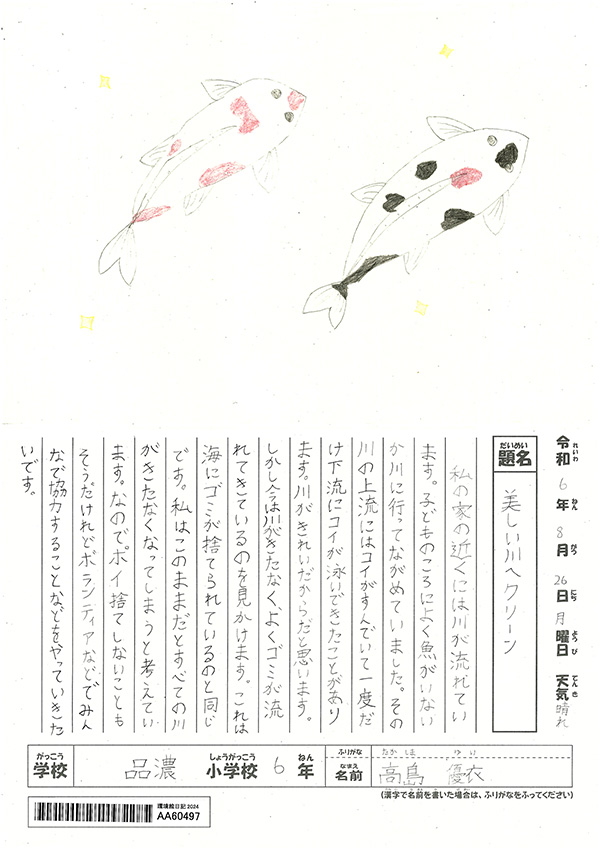 令和6年8月26日月曜日 天気晴れ
れいわ ねん がつ にち ようび てんき
だいめい
題名
美しい川へクリーン
私の家の近くには川が流れてい
ます。子どものころによく魚がいない
か川に行ってながめていました。その
川の上流にはコイがすんでいて一度だ
け下流にコイが泳いできたことがあり
ます。川がきれいだからだと思います。
しかし今は川がきたなく、よくゴミが流
れてきているのを見かけます。これは
海にゴミが捨てられているのと同じ
です。私はこのままだとすべての川
がきたなくなってしまうと考えてい
ます。なので、ポイ捨てしないことも
そうだけれどボランティアなどでみん
なで協力することなどをやっていきた
いです。
がっこう しょうがっこう ねん
学校 品濃 小学校 6年
ふりがな たかしま ゆい
なまえ
名前 高島 優衣
(漢字で名前を書いた場合は、ふりがなをふってください)
環境絵日記2024
AA60497